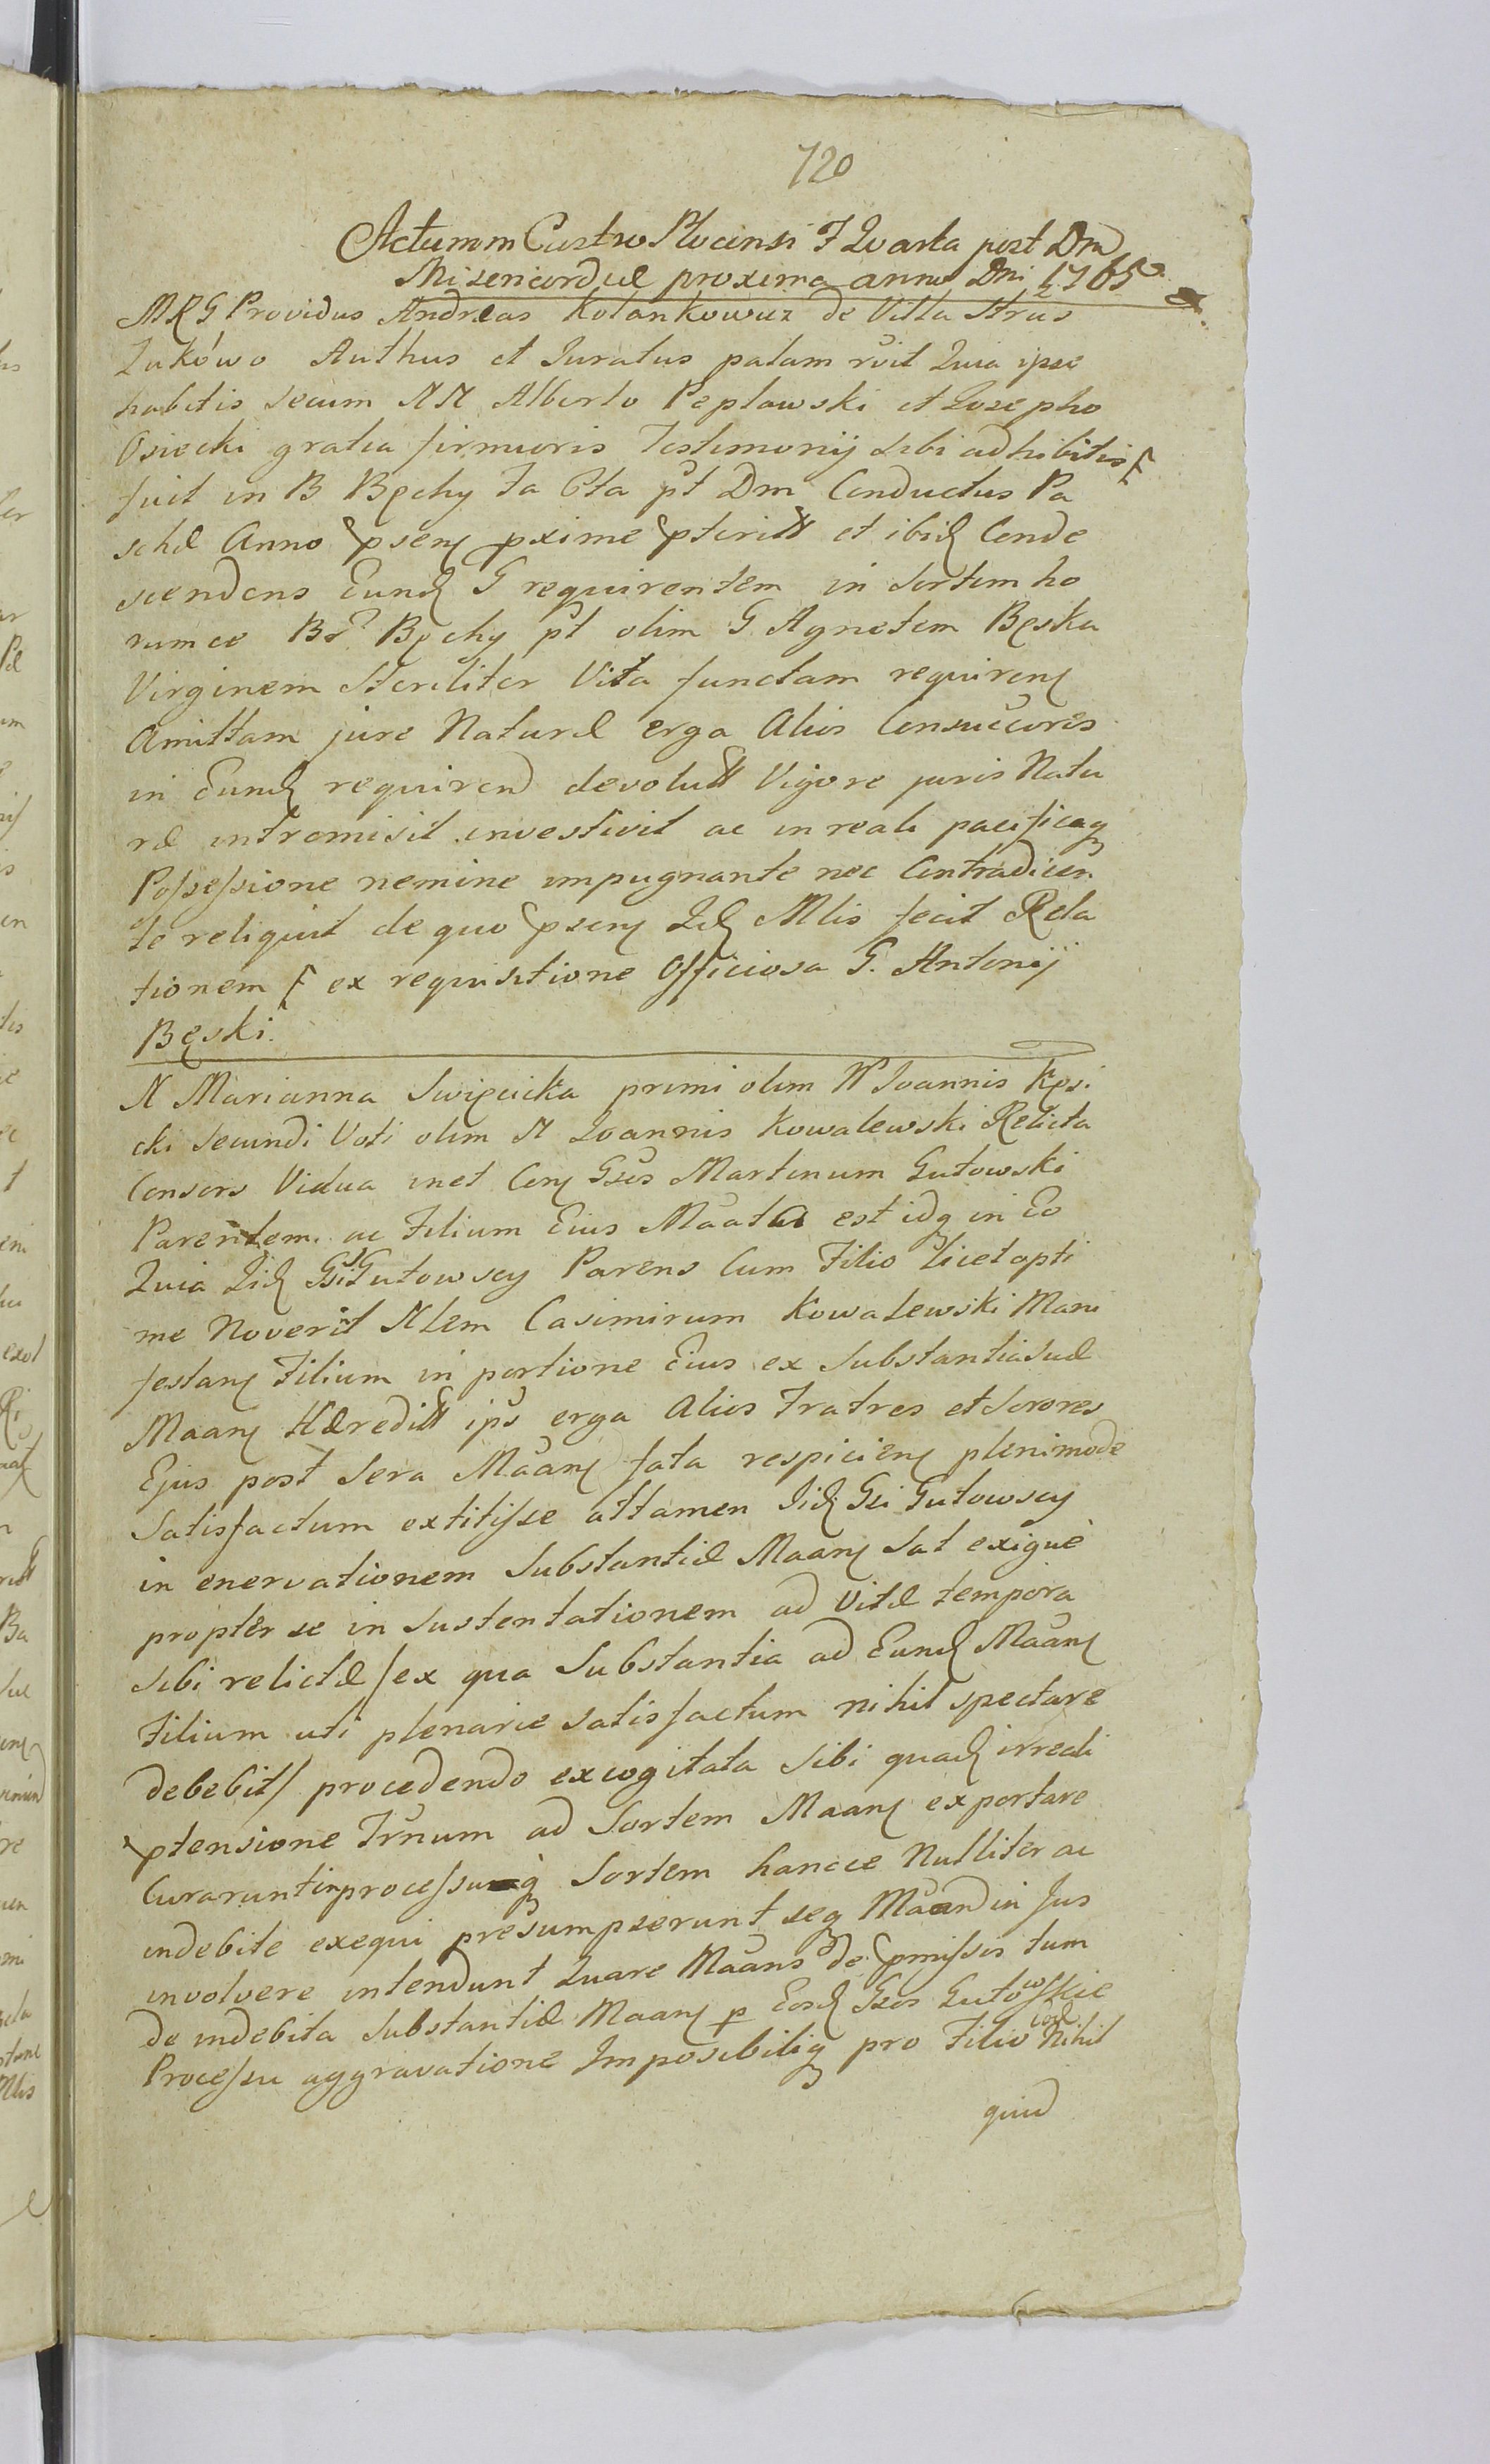 720
Actum in Castro Plocensi F Quarta post Dm
Misericordiæ proxima anno Dni 1765
MRG Providus Andreas Kolankowicz de Villa Strus
Zakówo Authus et Juratus palam rĉit Quia ipse
habitis secum NN Alberto Peplawski et Josepho
Osiecki gratia firmioris Testimonij sibi adhibitis
fuit in B Bęchy fa 6ta pt Dm Conductus Pa
schæ Anno psenȷ pxime pterito et ibidȷ Conde
scendens Eundȷ G requirentem in Sortem ho
rumce Br Bęchy pt olim G Agnetem Bęska
Virginem Steriliter Vita functam requirenȷ
Amittam jure Naturæ erga Alios Consuccores
in Eundȷ requirend devolutt Vigore juris Natu
ræ intromisit investivit ac in reali pacificaq
Possessione nemine impugnante nec Contradicen
te reliquit de quo psenȷ Idȷ Mlis fecit Rela
tionem ex requisitione Officiosa G. Antonij
Bęski.
N Marianna Swięcicka primi olim N Joannis Kęsi
cki Secundi Voti olim N Joannis Kowalewski Relicta
Consors Vidua inet Conȷ Gsos Martinum Gutowski
Parentem ac Filium Eius Maata est idq in Eo
Quia Iidȷ Gsi Gutowscy Parens Cum Filio licet opti
me Noverit Nlem Casimirum Kowalewski Mani
festanȷ Filium in portione Eius ex Substantia Suæ
Maanȷ Hæreditt ips erga Alios Fratres et Sorores
Ejus post Sera Maanȷ fata respicienȷ plenimode
Satisfactum extitisse attamen Iidȷ Gsi Gutowscy
in enervationem Substantiæ Maanȷ Sat exiguè
propter se in Sustentationem ad Vitæ tempora
sibi relictæ /ex qua Substantia ad Eundȷ Maanȷ
Filium uti plenarie satisfactum nihil spectare
debebit/ procedendo excogitata Sibi quadȷ irreali
ptensione Trnum ad Sortem Maanȷ exportare
Curarunt in processuq Sortem hancce Nulliter ac
indebite exequi presumpserunt seq Maand in Jus
involvere intendunt Quare Maans de pmissis tum
de indebita Substantiæ Maanȷ p Eosdȷ Gsos Gutowskie
Processu aggravatione Imposibiliq pro Filio Nihil
quid